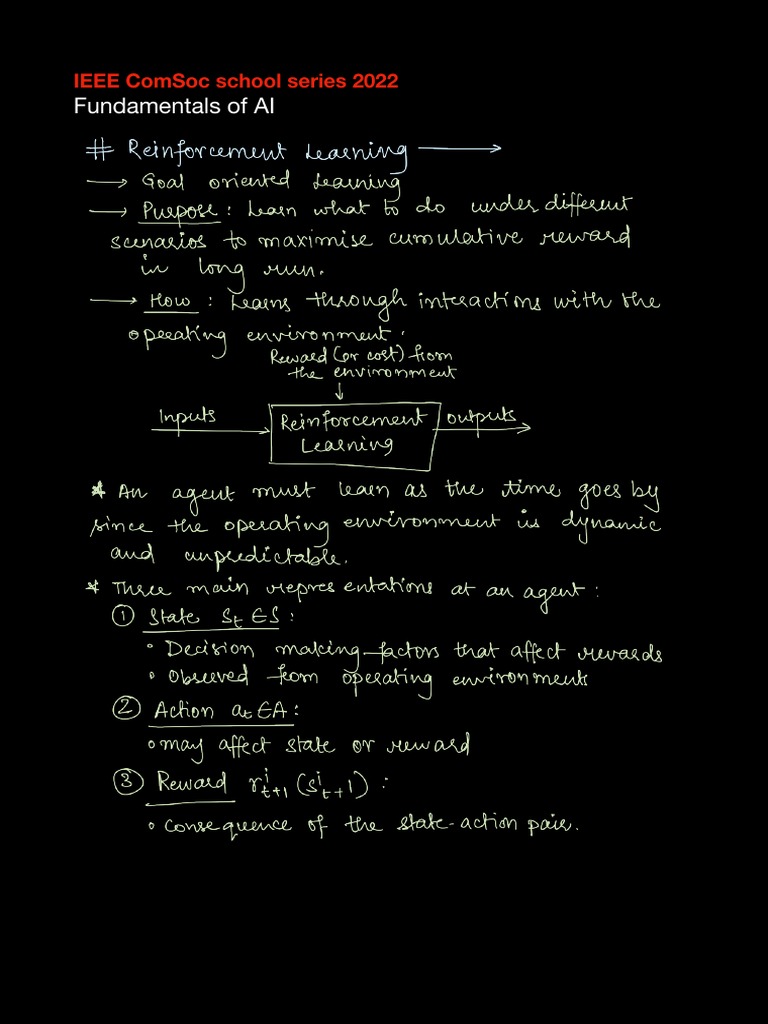 IEEE ComSoc school series 2022
Fundamentals of AI
# Reinforcement Learning →
→ Goal oriented Learning
→ Purpose : Learn what to do under different
scenarios to maximise cumulative reward
in long run.
→ How : Learns through interactions with the
operating environment.
Reward (or cost) from
the environment
↓
Inputs → Reinforcement Learning → outputs
* An agent must learn as the time goes by
since the operating environment is dynamic
and unpredictable.
* Three main representations at an agent :
① State St ∈ S :
• Decision making factors that affect rewards
• Observed from operating environment
② Action at ∈ A :
• may affect state or reward
③ Reward r^i_{t+1} (s^i_{t+1}) :
• consequence of the state-action pair.